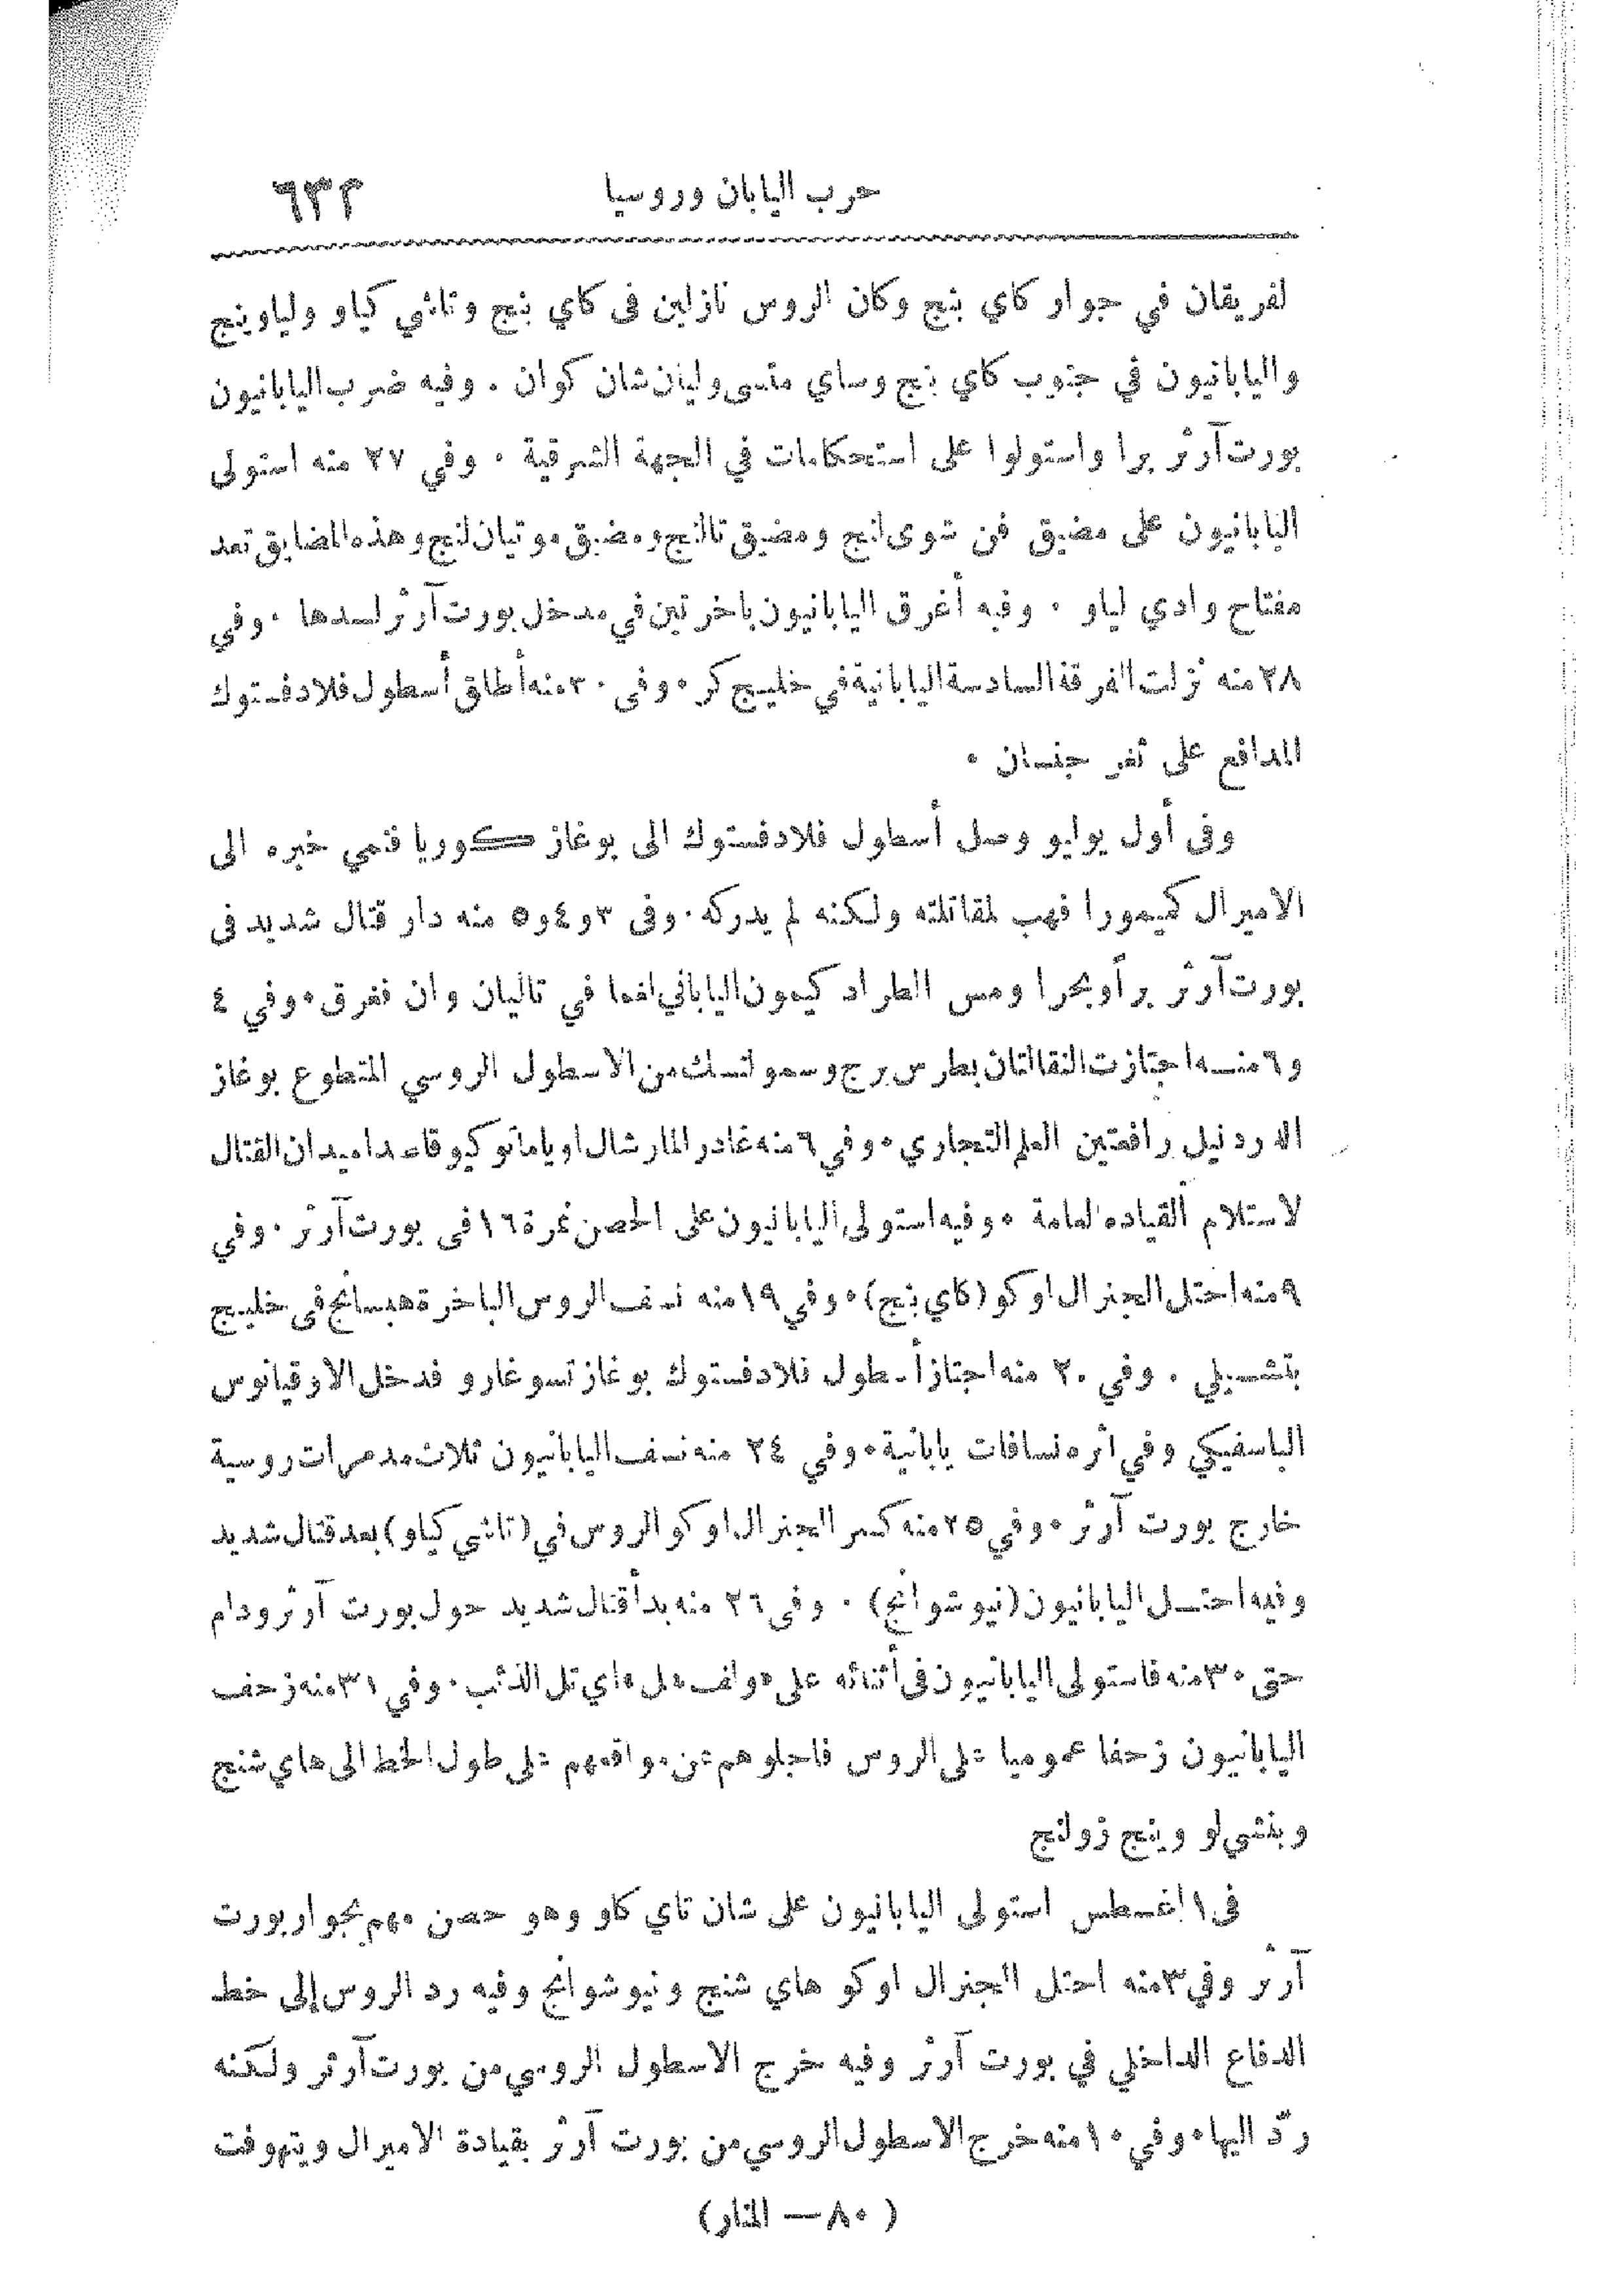 حرب اليابان وروسيا ٦٣٣
لفريقان في جوار كاي بنج وكان الروس نازلين فى كاي بنج وتاشي كياو ولياوينج
واليابانيون في جنوب كاي بنج وساي متسى وليان شان كوان . وفيه ضرب اليابانيون
بورت آرثر برا واستولوا على استحكامات في الجهة الشرقية . وفي ٢٧ منه استولى
اليابانيون على مضيق فن شوى لنج ومضيق تالنج ومضيق موتيان لنج وهذه المضايق تعد
مفتاح وادي لياو . وفيه أغرق اليابانيون باخرتين في مدخل بورت آرثر لسدها . وفي
٢٨ منه نزلت الفرقة السادسة اليابانية في خليج كر . وفى ٣٠ منه أطلق أسطول فلادفستوك
المدافع على ثغر جنسان .
وفى أول يوليو وصل أسطول فلادفستوك الى بوغاز كوريا فنمي خبره الى
الاميرال كيمورا فهب لمقاتلته ولكنه لم يدركه . وفى ٣ و٤ و٥ منه دار قتال شديد فى
بورت آرثر براً وبحرا ومس الطراد كيمون الياباني لغما في تاليان وان فغرق . وفي ٤
و٦ منه اجتازت النقالتان بطرس برج وسمولنسك من الاسطول الروسي المتطوع بوغاز
الدردنيل رافعتين العلم التجاري . وفي ٦ منه غادر المارشال اوياما توكيو قاصدا ميدان القتال
لاستلام القياده لعامة . وفيه استولى اليابانيون على الحصن نمرة ١٦ فى بورت آرثر . وفي
٩ منه احتل الجنرال اوكو (كاي بنج) . وفي ١٩ منه نسف الروس الباخرة هبسانج فى خليج
بتشيلي . وفي ٢٠ منه اجتاز أسطول فلادفستوك بوغاز تسوغارو فدخل الاوقيانوس
الباسفيكي وفي اثره نسافات يابانية . وفي ٢٤ منه نسف اليابانيون ثلاث مدمرات روسية
خارج بورت آرثر . وفي ٢٥ منه كسر الجنرال اوكو الروس في (تاشي كياو) بعد قتال شديد
وفيه احتل اليابانيون (نيو شوانج) . وفى ٢٦ منه بدأ قتال شديد حول بورت آرثر ودام
حتى ٣٠ منه فاستولى اليابانيون فى أثنائه على «ولف هل» اي تل الذئب . وفي ٣١ منه زحف
اليابانيون زحفا عموميا على الروس فاجلوهم عن مواقعهم على طول الخط الى هاي شنج
وبنشي لو وينج زولنج
فى ١ اغسطس استولى اليابانيون على شان تاي كاو وهو حصن مهم بجوار بورت
آرثر وفي ٣ منه احتل الجنرال اوكو هاي شنج ونيو شوانج وفيه رد الروس إلى خط
الدفاع الداخلي في بورت آرثر وفيه خرج الاسطول الروسي من بورت آرثر ولكنه
ردّ اليها . وفي ١٠ منه خرج الاسطول الروسي من بورت آرثر بقيادة الاميرال ويتهوفت
( ٨٠ — المنار)